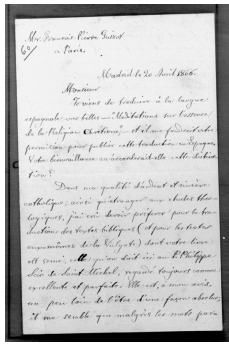 Mr. François Pierre Guizot
6°/
a Paris.
Madrid le 20 Avril 1866.
Monsieur
Je viens de traduire à la langue
espagnole vos belles Méditations sur l'essence
de la Religion Chrétienne, et il me faudrait votre
permission pour publier cette traduction en Espagne.
Votre bienveillance m'accorderait-elle cette distinc-
tion?
Dans ma qualité d'ardent et sincère
catholique, ainsi qu'étranger aux études théo-
logiques, j'ai cru devoir préférer pour la tra-
duction des textes bibliques (et pour les textes
eux-mêmes de la Vulgate) dont votre livre
est semé, celle qu'on doit ici au P. Philippe
Scio de Saint Michel, regardée toujours comme
excellente et parfaite. Elle est, à mon avis,
un peu loin de l'être d'une façon absolue,
il me semble que malgré les mots